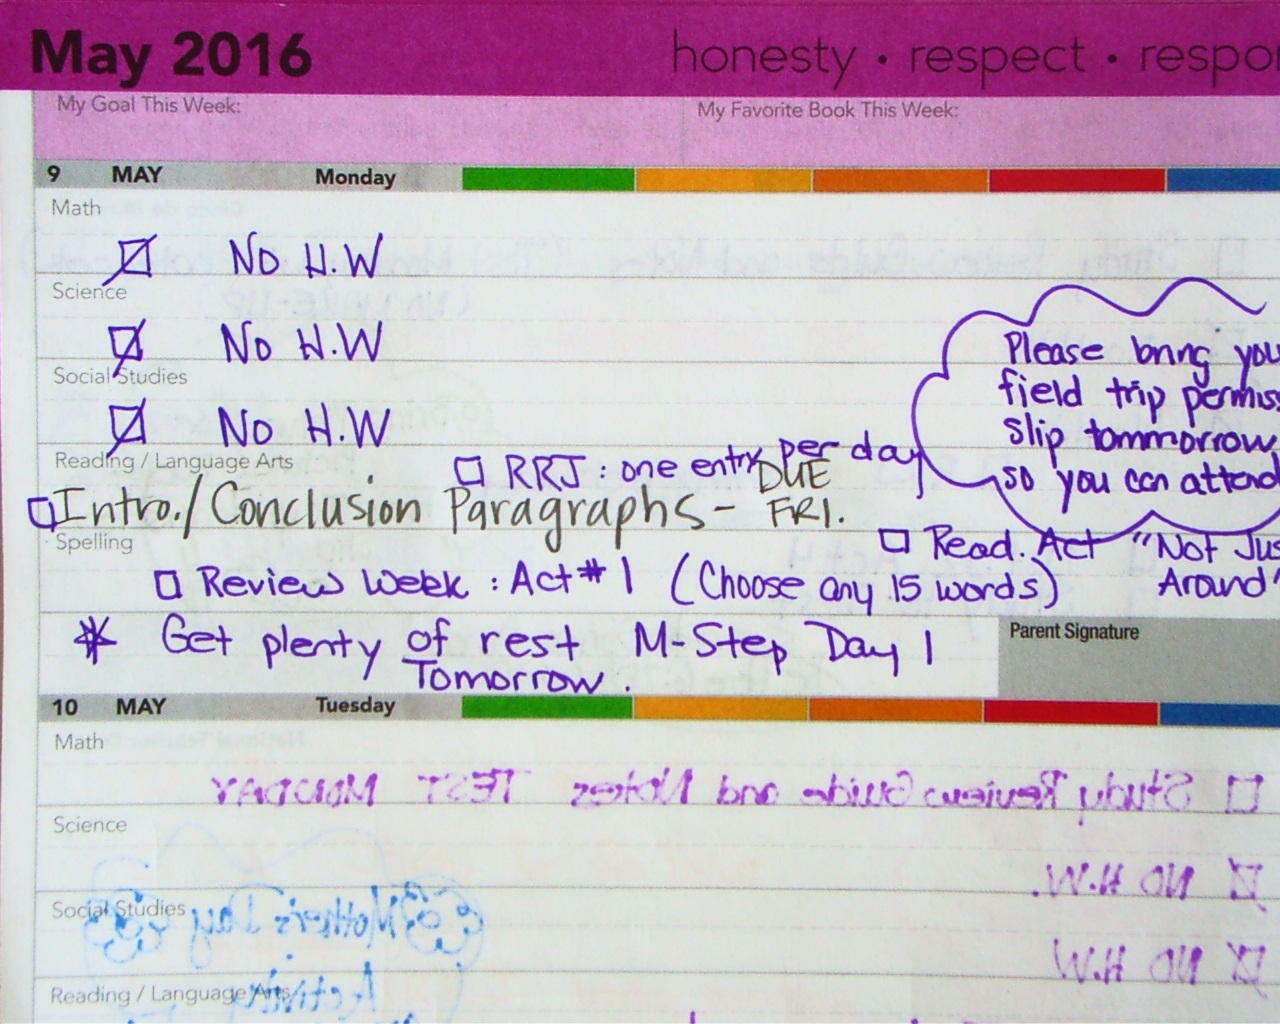 May 2016 honesty • respect • respo
My Goal This Week: My Favorite Book This Week:
9 MAY Monday
Math
No H.W
Science
No H.W
Social Studies
No H.W
Please bring you
field trip permiss
slip tommorrow
so you can attend
Reading / Language Arts
RRJ : one entry per day
Intro./Conclusion Paragraphs - DUE FRI.
Spelling
Read. Act "Not Jus
Around"
Review Week : Act # 1 (Choose any 15 words)
* Get plenty of rest M-Step Day 1
Tomorrow.
Parent Signature
10 MAY Tuesday
Math
Study Review Guide and Notes TEST MONDAY
Science
NO H.W.
Social Studies
Mother's Day
NO H.W
Activity
Reading / Language Arts